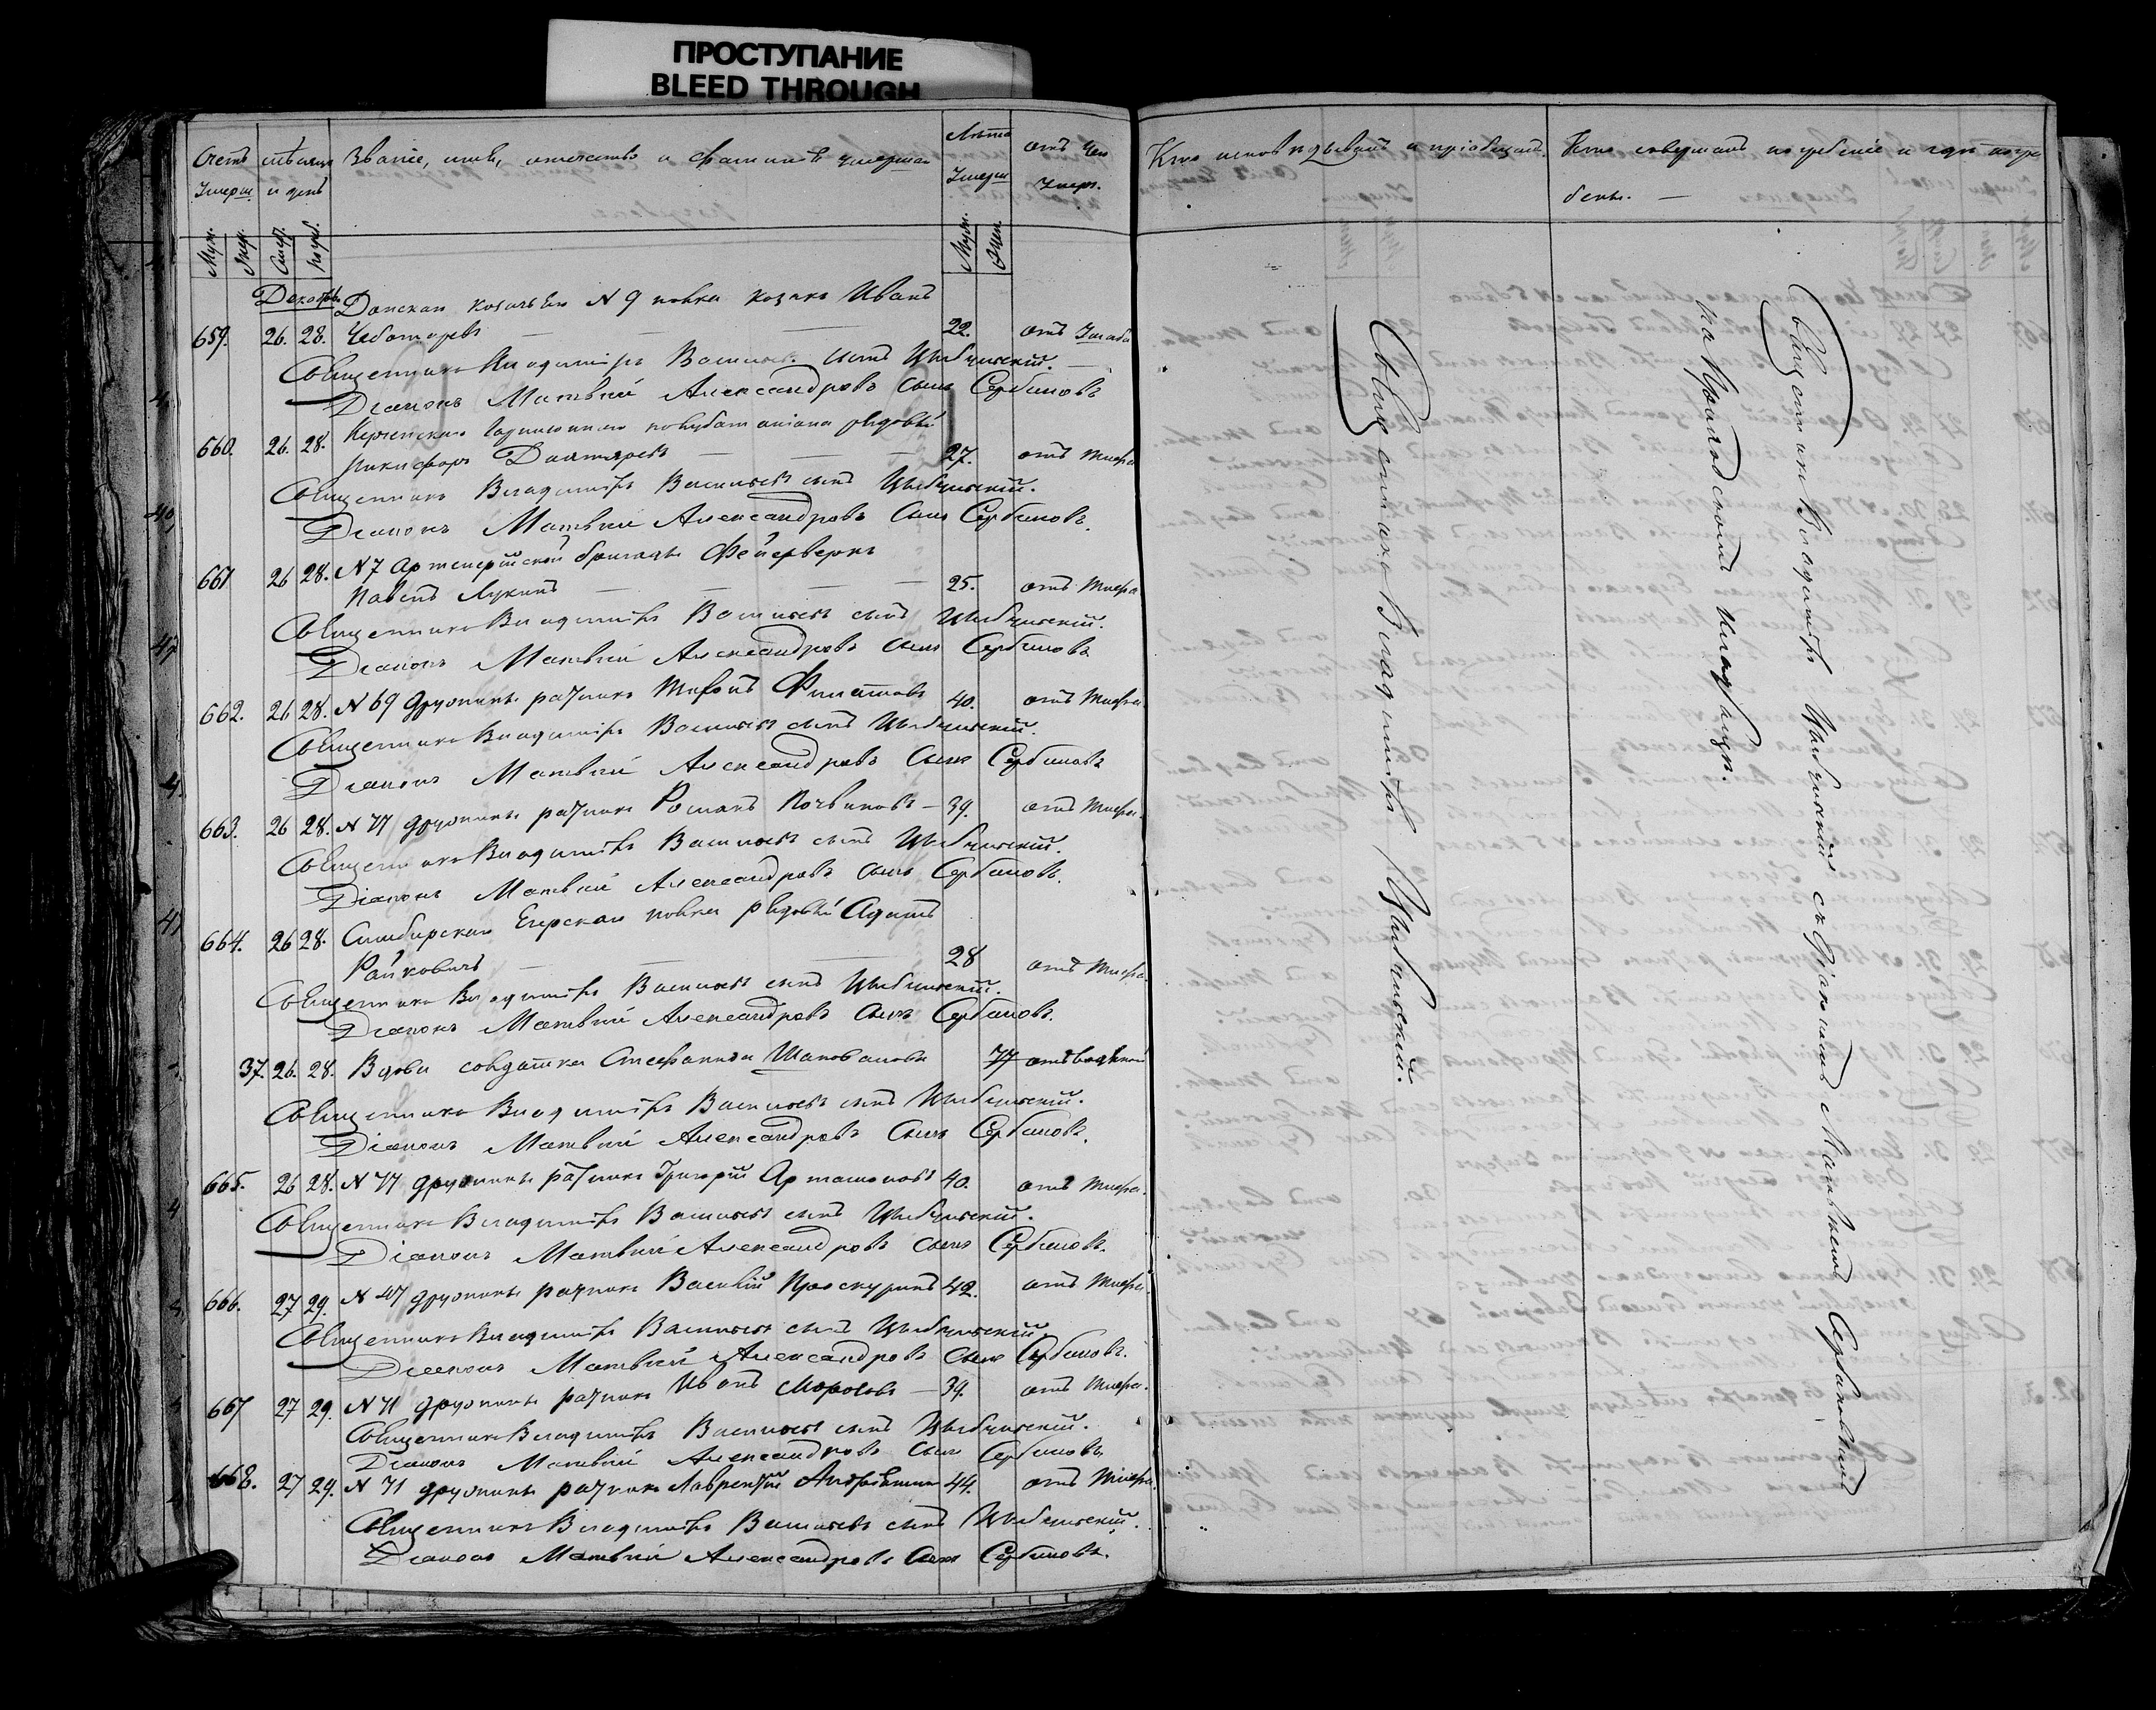 ПРОСТУПАНИЕ
BLEED THROUGH
Счетъ Умерш.
мѣсяцъ и день
Званіе, имя, отчество и фамилія умершаго
Лѣта Умерш.
отъ чего умер.
Муж. Жен. Смер. погреб.
Муж. Жен.
Декабрь
Донскаго козачьяго N 9 полка козакъ Иванъ
659. 26. 28. Чеботаревъ 22. отъ
Священникъ Владиміръ Васильевъ сынъ Цыбульскій.
Діаконъ Матвѣй Александровъ Сынъ Сербиновъ
660. 26. 28. Керченскаго Гарнизоннаго полубаталіона рядовый
Никифоръ Дихтяревъ 27. отъ тифа
Священникъ Владиміръ Васильевъ сынъ Цыбульскій.
Діаконъ Матвѣй Александровъ Сынъ Сербиновъ.
661 26 28. N 7 Артилерійской бригады Фейерверкъ
Павелъ Лукинъ 25. отъ тифа
Священникъ Владиміръ Васильевъ сынъ Цыбульскій.
Діаконъ Матвѣй Александровъ Сынъ Сербиновъ
662. 26 28. N 69 дружины ратникъ Филатовъ 40. отъ тифа
Священникъ Владиміръ Васильевъ сынъ Цыбульскій.
Діаконъ Матвѣй Александровъ Сынъ Сербиновъ
663. 26 28. N 77 дружины ратникъ Романъ 39. отъ тифа
Священникъ Владиміръ Васильевъ сынъ Цыбульскій.
Діаконъ Матвѣй Александровъ Сынъ Сербиновъ.
664. 26 28. Симбирскаго Егерскаго полка рядовый Адамъ
Райковичъ 28 отъ тифа
Священникъ Владиміръ Васильевъ сынъ Цыбульскій.
Діаконъ Матвѣй Александровъ Сынъ Сербиновъ.
37. 26. 28. Вдова солдатка Стефанида Шаповалова 77 отъ водяной
Священникъ Владиміръ Васильевъ сынъ Цыбульскій.
Діаконъ Матвѣй Александровъ Сынъ Сербиновъ.
665. 26 28. N 77 дружины ратникъ Григорій Артамоновъ 40. отъ тифа.
Священникъ Владиміръ Васильевъ сынъ Цыбульскій.
Діаконъ Матвѣй Александровъ Сынъ Сербиновъ.
666. 27 29. N 47 дружины ратникъ Василій Проскуринъ 42. отъ тифа.
Священникъ Владиміръ Васильевъ сынъ Цыбульскій.
Діаконъ Матвѣй Александровъ Сынъ Сербиновъ.
667 27 29. N 71 дружины ратникъ Иванъ Морозовъ 39. отъ тифа.
Священникъ Владиміръ Васильевъ сынъ Цыбульскій.
Діаконъ Матвѣй Александровъ Сынъ Сербиновъ
668. 27 29. N 71 дружины ратникъ Лаврентій 44. отъ тифа.
Священникъ Владиміръ Васильевъ сынъ Цыбульскій.
Діаконъ Матвѣй Александровъ Сынъ Сербиновъ.
Кто исповѣдывалъ и пріобщалъ.
Кто совершалъ погребеніе и гдѣ погребены.
Священникъ Владиміръ Цыбульскій.
Священникъ Владиміръ Цыбульскій съ Діакономъ Матвѣемъ Сербиновымъ
на Городскомъ кладбищѣ.